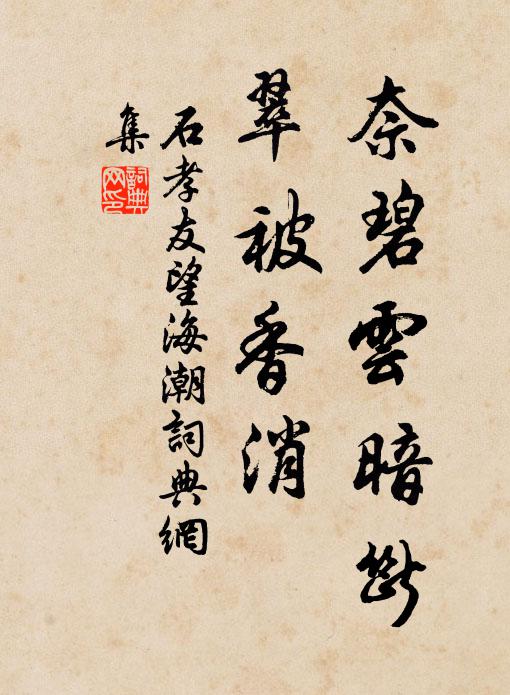 奈碧雲暗斷
翠被香消
石孝友望海潮詞典網
集
詞典網印